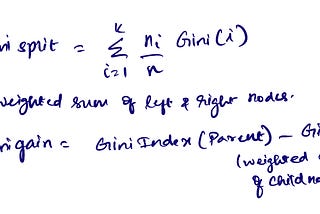 ni split = K∑i=1 ni/n Gini(i)
weighted sum of left & right nodes.
ni gain = Gini Index (Parent) – Gi
(weighted
of child no